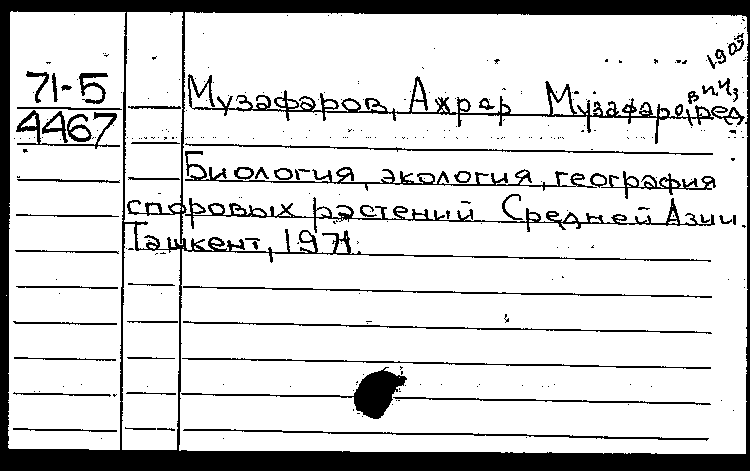 1909
71-5 Музафаров, Ахрор Музафаро, ред.
4467
Биология, экология, география
споровых растений Средней Азии.
Ташкент, 1971.